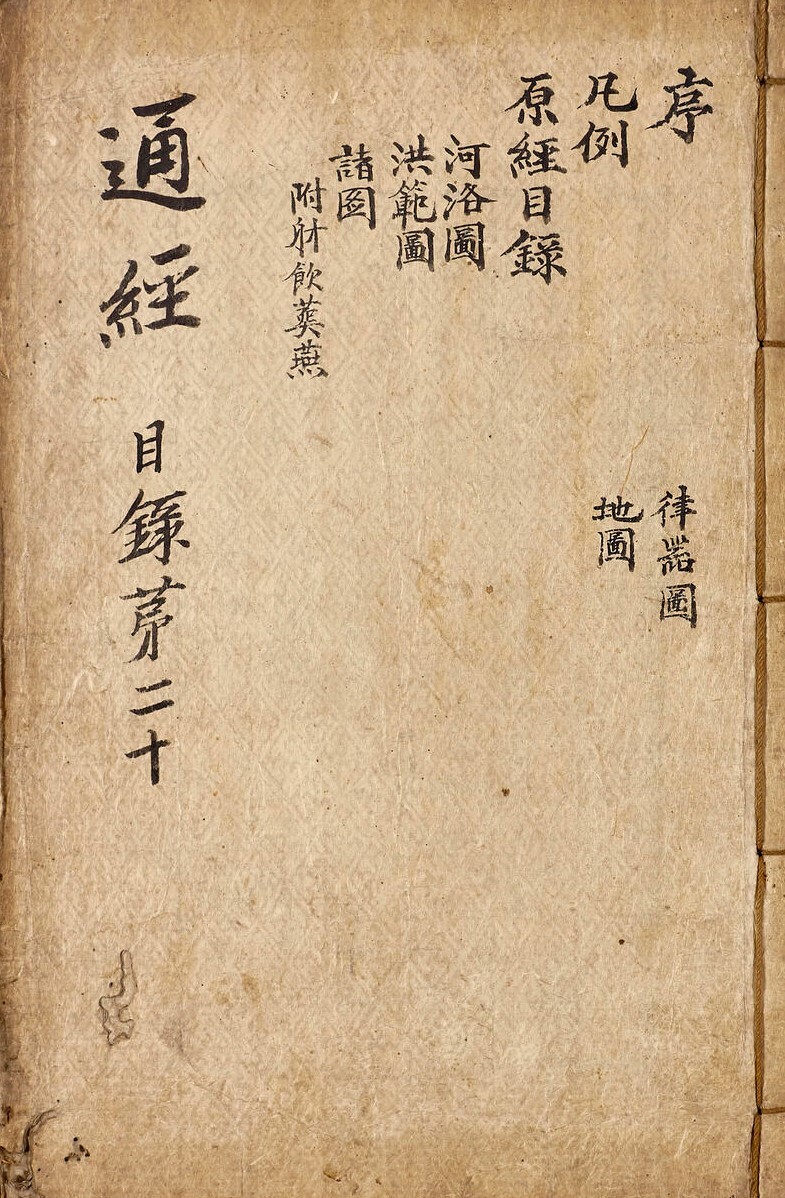 序
凡例
原經目錄
河洛圖
洪範圖
諸図
附射飲葬燕
律器圖
地圖
通經 目錄苐二十